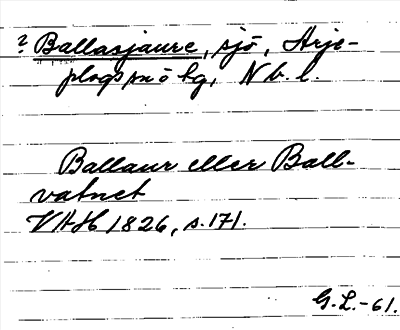 ? Ballasjaure, sjö, Arje-
plogs snö lg, Nb. l.
Ballaur eller Ball-
vatnet
VAH 1826, s. 171.
G. L. -61.